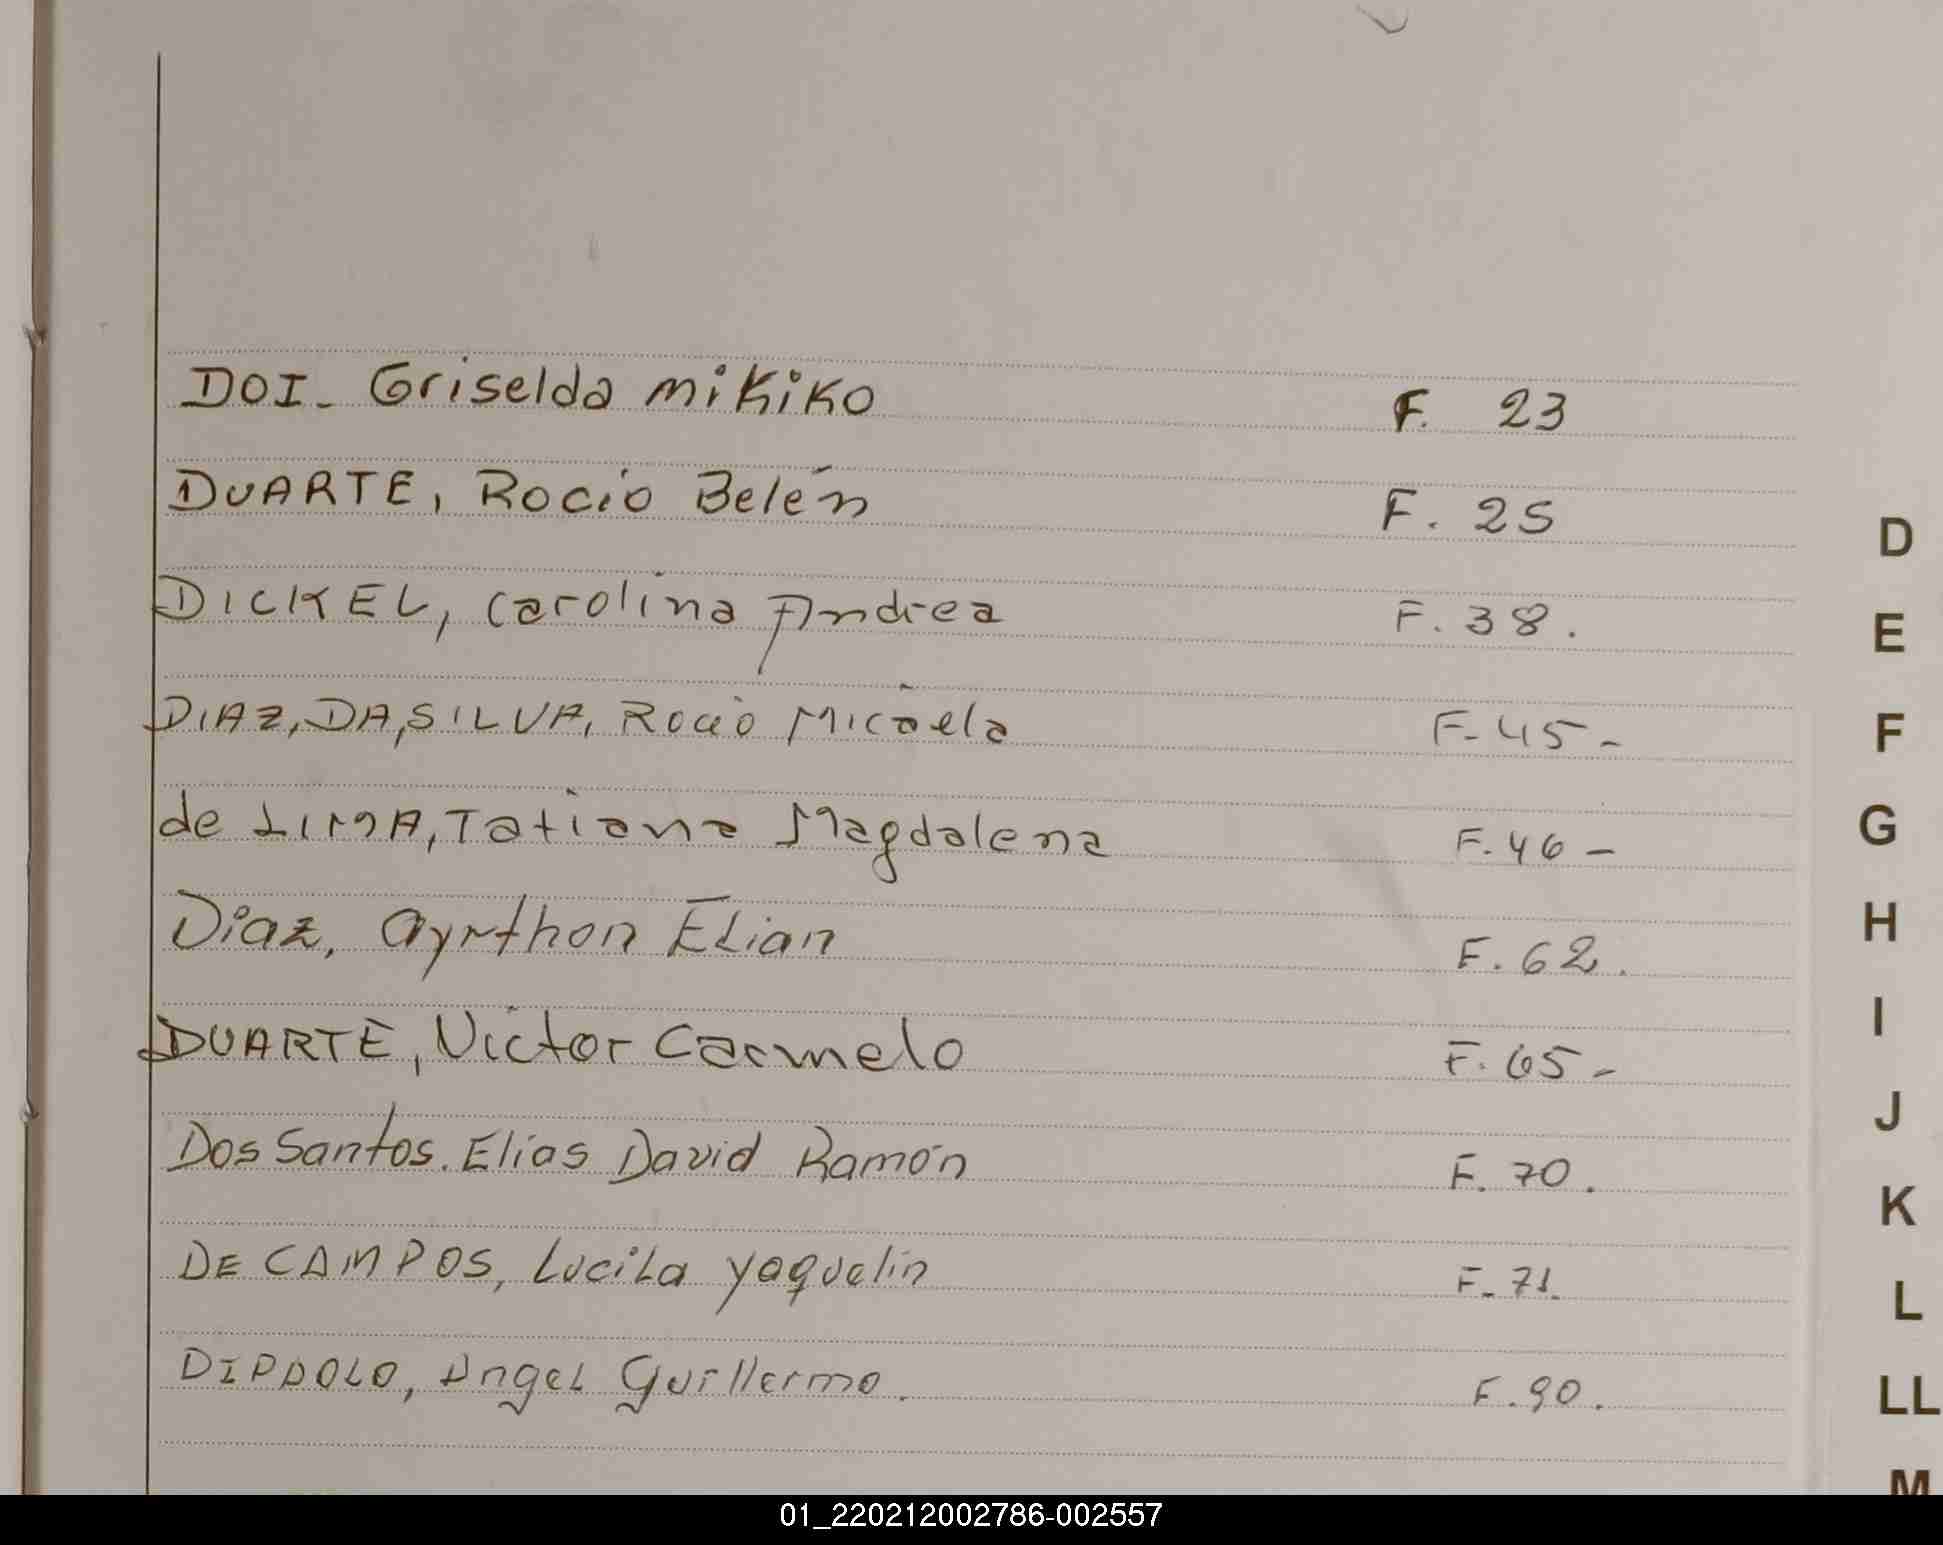 DOI. Griselda mikiko F. 23
DUARTE, Rocio Belén F. 25
D
DICKEL, Carolina Andrea F. 38.
E
DIAZ, DA, SILVA, Rocio Micaela F-45-
F
de LIMA, Tatiana Magdalena F.46-
G
Diaz, Ayrthon Elian F.62.
H
I
DUARTE, Victor Carmelo F.65-
J
Dos Santos. Elias David Ramón F. 70.
K
DE CAMPOS, Lucila Yaquelin F-71.
L
DIPAOLO, Angel Guillermo. F.90.
LL
M
01_220212002786-002557